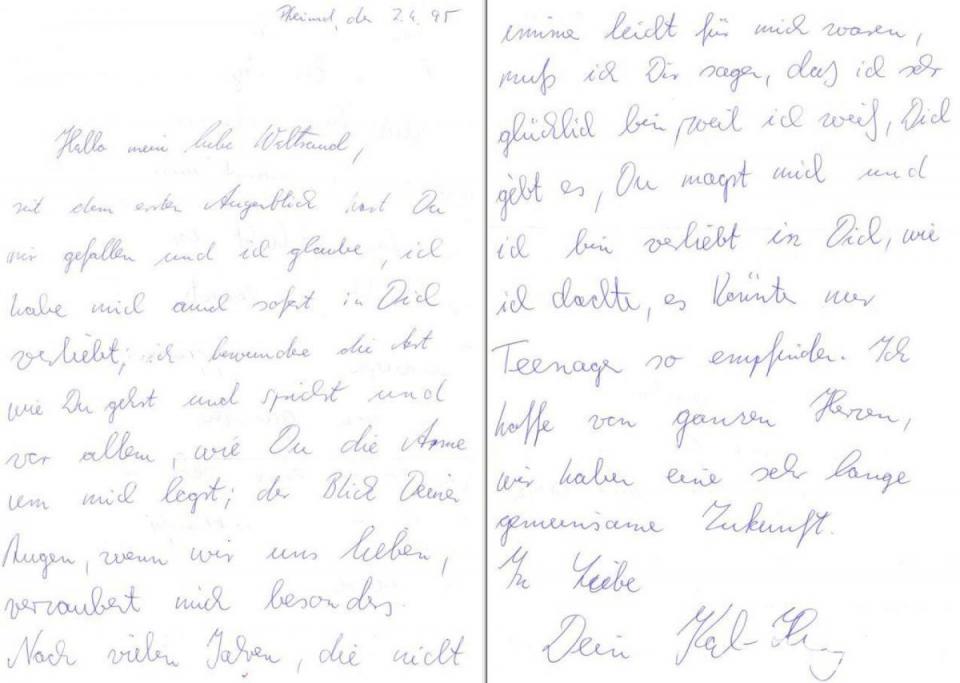 den 2.4.95
Hallo mein liebe Waltraud,
seit dem ersten Augenblick hast Du
mir gefallen und ich glaube, ich
habe mich auch sofort in Dich
verliebt; ich bewundre die Art
wie Du gehst und sprichst und
vor allem, wie Du die Arme
um mich legst; der Blick Deiner
Augen, wenn wir uns lieben,
verzaubert mich besonders.
Nach vielen Jahren, die nicht
immer leicht für mich waren,
muß ich Dir sagen, daß ich sehr
glücklich bin, weil ich weiß, Dich
gibt es, Du magst mich und
ich bin verliebt in Dich, wie
ich dachte, es könnte nur
Teenager so empfinden. Ich
hoffe von ganzen Herzen,
wir haben eine sehr lange
gemeinsame Zukunft.
In Liebe
Dein Karl-